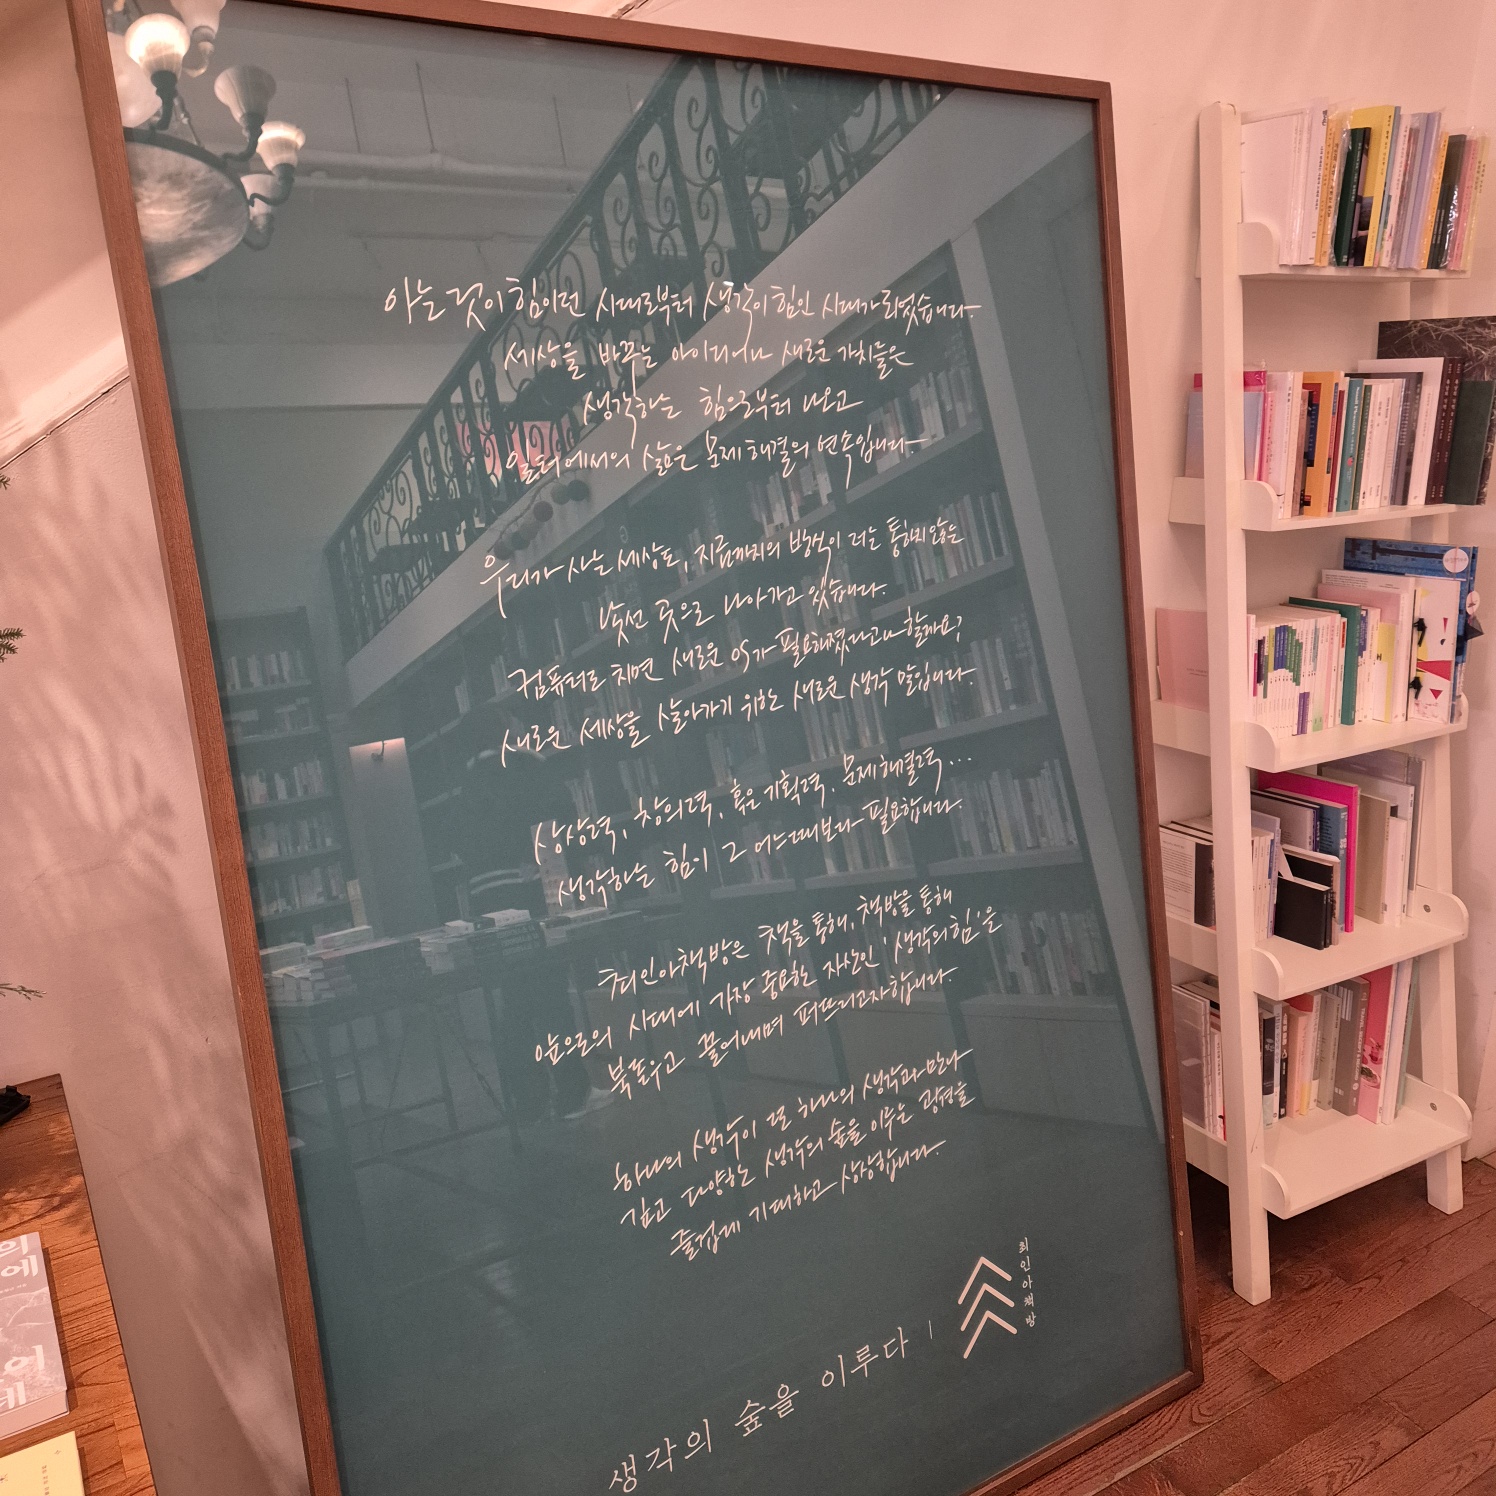 아는 것이 힘이던 시대로부터 생각이 힘인 시대가 되었습니다.
세상을 바꾸는 아이디어나 새로운 가치들은
생각하는 힘으로부터 나오고
일터에서의 삶은 문제 해결의 연속입니다.
우리가 사는 세상도, 지금까지의 방식이 더는 통하지 않는
낯선 곳으로 나아가고 있습니다.
컴퓨터로 치면 새로운 OS가 필요해졌다고나 할까요?
새로운 세상을 살아가기 위한 새로운 생각 말입니다.
상상력, 창의력, 혹은 기획력, 문제해결력...
생각하는 힘이 그 어느때보다 필요합니다.
최인아책방은 책을 통해, 책방을 통해
앞으로의 시대에 가장 중요한 자산인 '생각의 힘'을
북돋우고 끌어내며 퍼뜨리고자 합니다.
하나의 생각이 또 하나의 생각과 만나
깊고 다양한 생각의 숲을 이루는 광경을
즐겁게 기대하고 상상합니다.
생각의 숲을 이루다 |
최인아책방